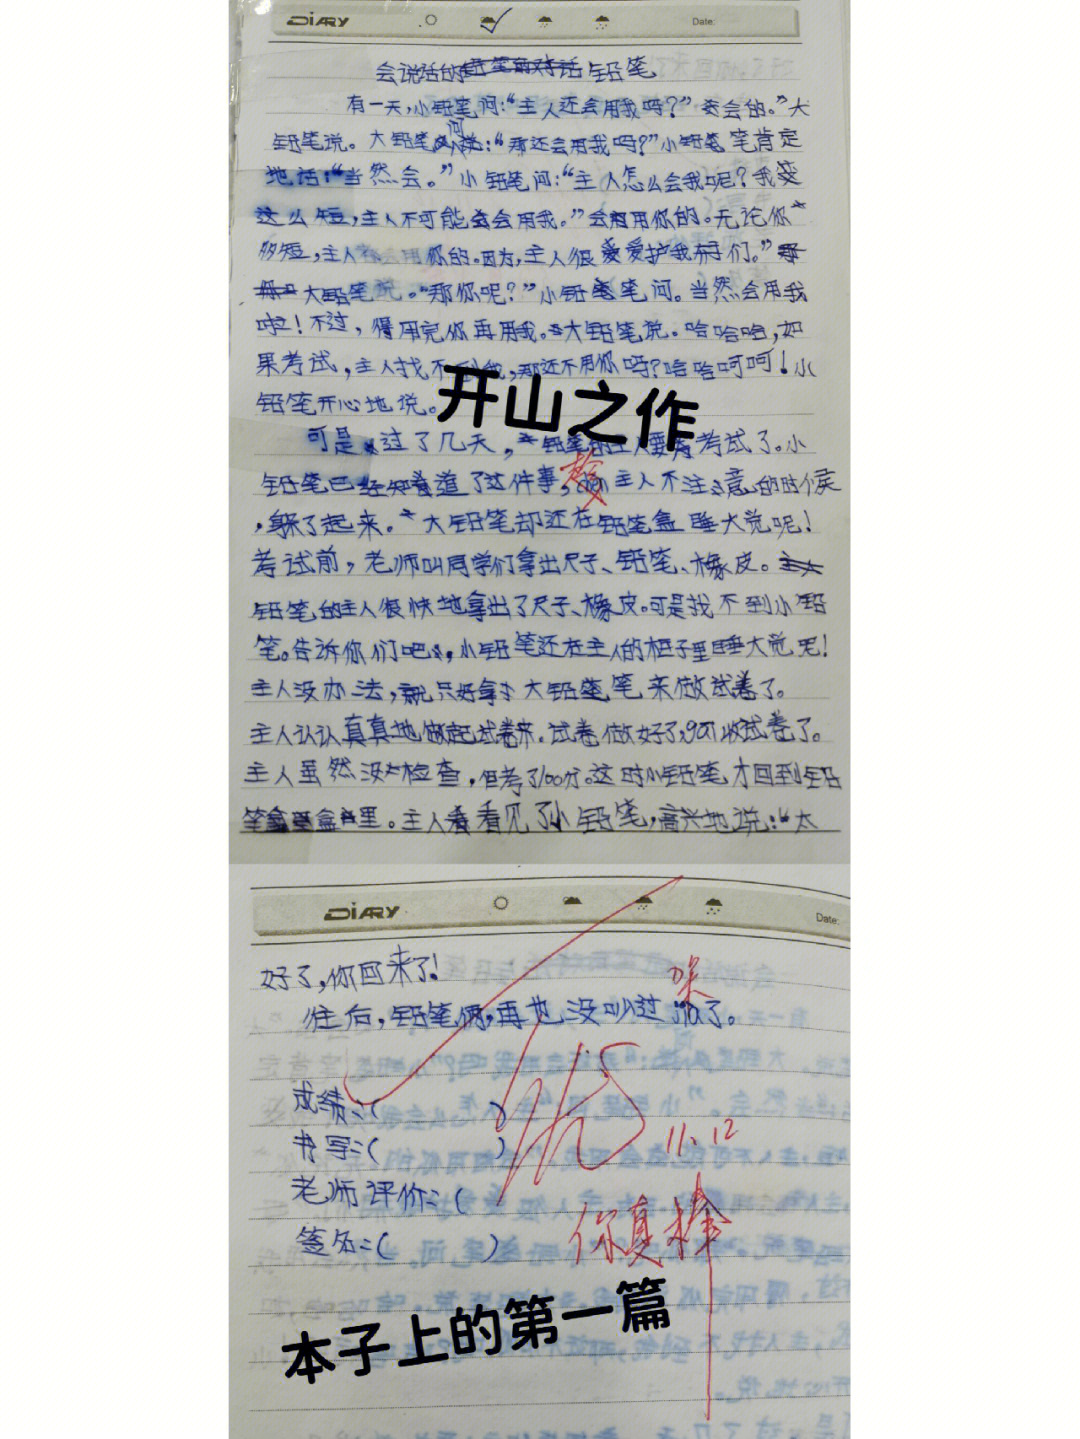 DIARY Date:
会说话的铅笔
有一天,小铅笔问:“主人还会用我吗?”会的。”大
铅笔说。大铅笔问:“那还会用我吗?”小铅笔笔肯定
地话:“当然会。”小铅笔问:“主人怎么会我呢?我
这么短,主人不可能会用我。”会用你的。无论你
多短,主人都会用你的。因为,主人很爱护我们。”
大铅笔说。“那你呢?”小铅笔问。当然会用我
啦!不过,得用完你再用我。大铅笔说。哈哈哈,如
果考试,主人找不到我,那还不用你吗?哈哈呵呵!小
铅笔开心地说。
开山之作
可是过了几天,铅笔的主人要考试了。小
铅笔已经知道了这件事,趁主人不注意的时候
,躲了起来。大铅笔却还在铅笔盒睡大觉呢!
考试前,老师叫同学们拿出尺子、铅笔、橡皮。
铅笔的主人很快地拿出了尺子、橡皮。可是找不到小铅
笔。告诉你们吧,小铅笔还在主人的柜子里睡大觉呢!
主人没办法,就只好拿大铅笔来做试卷了。
主人认认真真地做起试卷来。试卷做好了,收试卷了。
主人虽然没检查,但考了100分。这时小铅笔才回到铅
笔盒里。主人看见了小铅笔,高兴地说:“太
DIARY Date:
好了,你回来了!
往后,铅笔俩,再也没吵过架了。
成绩:( )
书写:( )
11.12
老师评价:(
签名:( )
你真棒
本子上的第一篇